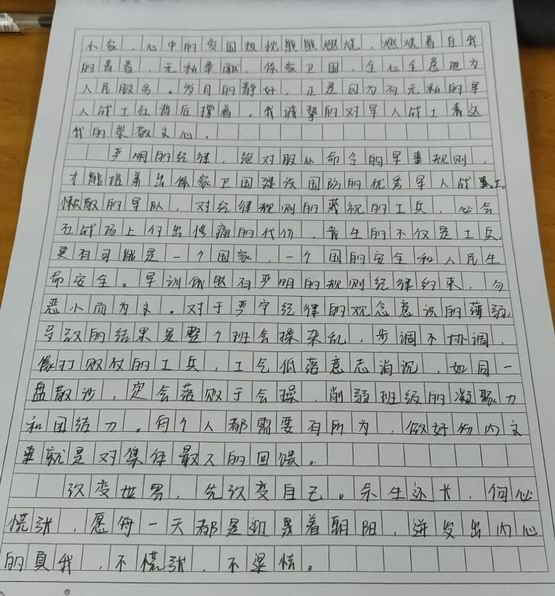 小家，心中的爱国热忱熊熊燃烧，燃烧着自我
的青春，无私奉献，保家卫国，全心全意地为
人民服务。岁月的静好，正是因为有无私的军
人战士在背后撑着。我诚挚的对军人战士表达
我的崇敬之心。
严明的纪律，绝对服从命令的军事规则，
才能培养出保家卫国建设国防的优秀军人战士。
懒散的军队，对纪律规则的藐视的士兵，必会
在战场上付出惨痛的代价，牺牲的不仅是士兵，
更有可能是一个国家，一个国的安全和人民生
命安全。军训依然有严明的规则纪律约束，勿
恶小而为之。对于严守纪律的观念意识的薄弱，
导致的结果是整个班会操杂乱，步调不协调，
像打败仗的士兵，士气低落意志消沉，如同一
盘散沙，定会落败于会操，削弱班级的凝聚力
和团结力。每个人都需要有所为，做好份内之
事就是对集体最大的回馈。
改变世界，先改变自己。余生还长，何必
慌张，愿每一天都是迎着朝阳，迸发出内心
的真我，不慌张，不退怯。